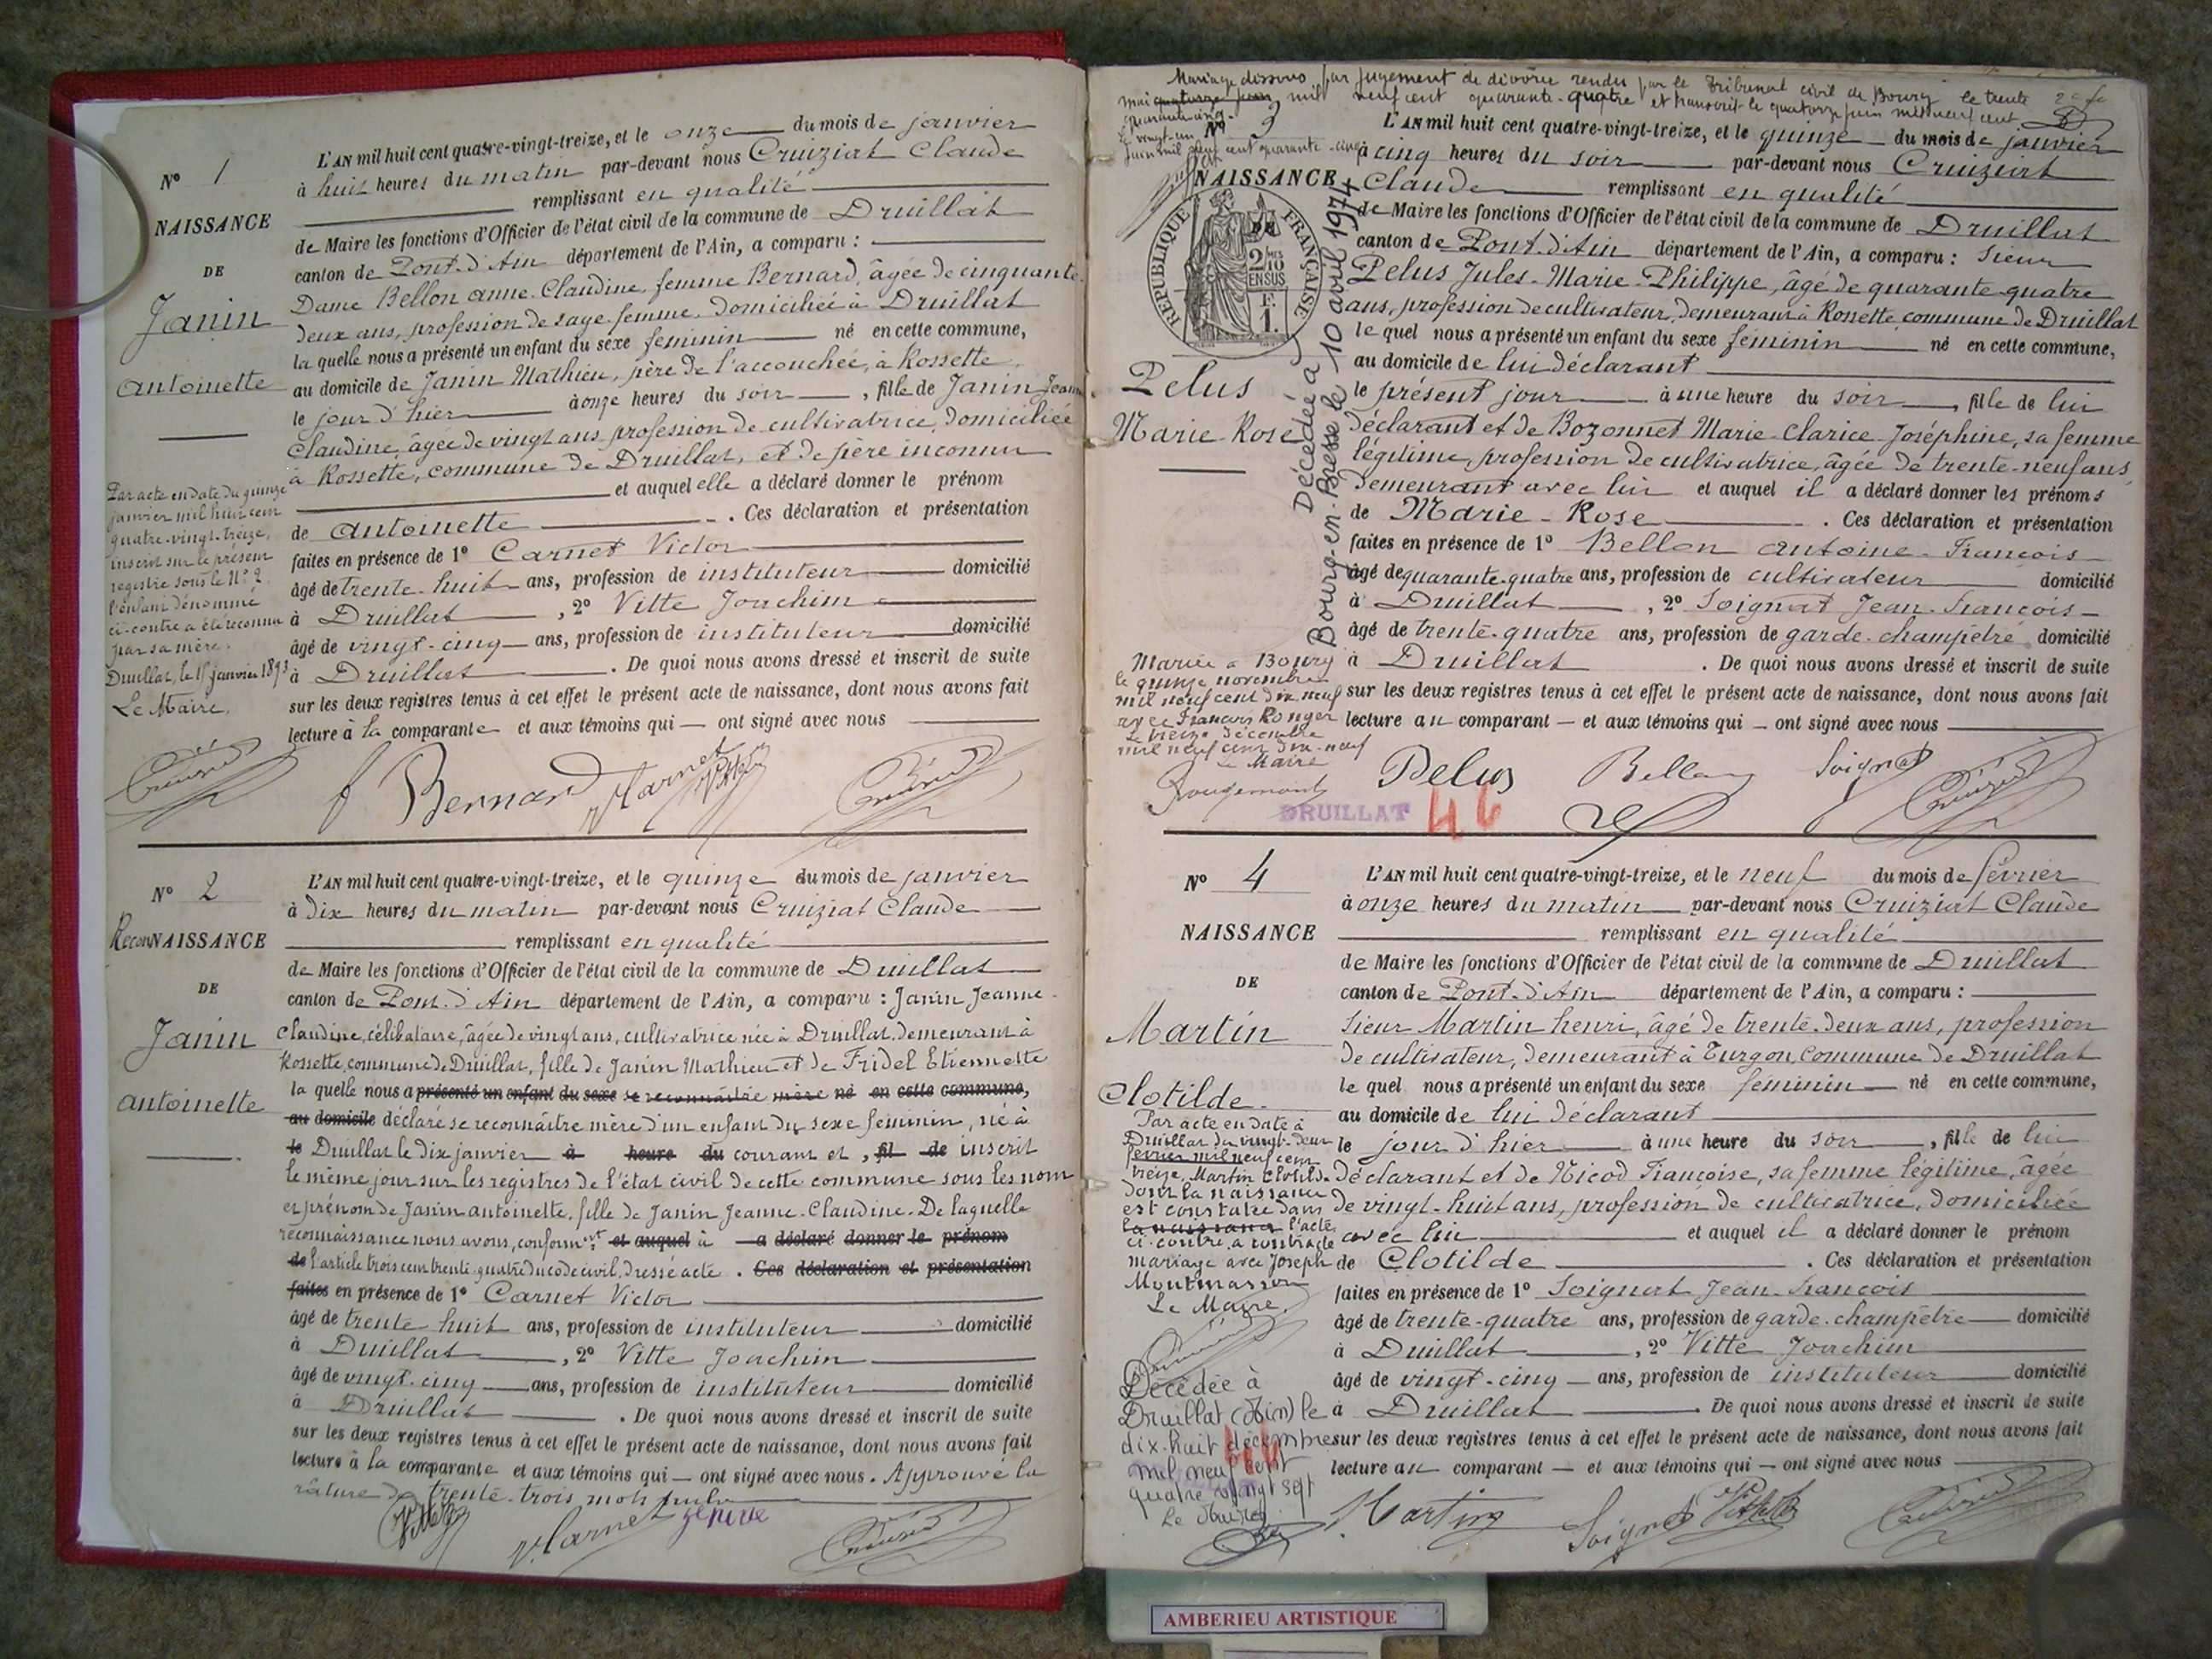 N° 1
NAISSANCE
DE
Janin
Antoinette
L'AN mil huit cent quatre-vingt-treize, et le onze du mois de janvier
à huit heures du matin par-devant nous Cruiziat Claude
remplissant en qualité
de Maire les fonctions d'Officier de l'état civil de la commune de Druillat
canton de Pont-d'Ain département de l'Ain, a comparu :
Dame Bellon Anne-Claudine, femme Bernard, âgée de cinquante-
deux ans, profession de sage-femme, domiciliée à Druillat
la quelle nous a présenté un enfant du sexe féminin né en cette commune,
au domicile de Janin Mathieu, père de l'accouchée, à Rossette
le jour d'hier à onze heures du soir, fille de Janin Jeanne
Claudine, âgée de vingt ans, profession de cultivatrice, domiciliée
à Rossette, commune de Druillat, et de père inconnu
et auquel elle a déclaré donner le prénom
de Antoinette. Ces déclaration et présentation
faites en présence de 1° Carnet Victor
âgé de trente-huit ans, profession de instituteur domicilié
à Druillat, 2° Vitte Joachim
âgé de vingt-cinq ans, profession de instituteur domicilié
à Druillat. De quoi nous avons dressé et inscrit de suite
sur les deux registres tenus à cet effet le présent acte de naissance, dont nous avons fait
lecture à la comparante et aux témoins qui — ont signé avec nous
Par acte en date du quinze
janvier mil huit cent
quatre-vingt-treize,
inscrit sur le présent
registre sous le N° 2
l'enfant dénommé
ci-contre a été reconnu
par sa mère.
Druillat, le 15 janvier 1893
Le Maire,
f Bernard V Carnet Vitte
N° 2
ReconNAISSANCE
DE
Janin
Antoinette
L'AN mil huit cent quatre-vingt-treize, et le quinze du mois de janvier
à dix heures du matin par-devant nous Cruiziat Claude
remplissant en qualité
de Maire les fonctions d'Officier de l'état civil de la commune de Druillat
canton de Pont-d'Ain département de l'Ain, a comparu : Janin Jeanne-
Claudine, célibataire, âgée de vingt ans, cultivatrice née à Druillat, demeurant à
Rossette, commune de Druillat, fille de Janin Mathieu et de Fridel Etiennette
la quelle nous a présenté un enfant du sexe se reconnaître mère né en cette commune,
au domicile déclaré se reconnaître mère d'un enfant du sexe féminin, né à
le Druillat le dix janvier à heure du courant et, fil de inscrit
le même jour sur les registres de l'état civil de cette commune sous les nom
et prénom de Janin Antoinette, fille de Janin Jeanne-Claudine. De laquelle
reconnaissance nous avons, conformt et auquel à a déclaré donner le prénom
de l'article trois cent trente-quatre du code civil, dressé acte. Ces déclaration et présentation
faites en présence de 1° Carnet Victor
âgé de trente-huit ans, profession de instituteur domicilié
à Druillat, 2° Vitte Joachim
âgé de vingt-cinq ans, profession de instituteur domicilié
à Druillat. De quoi nous avons dressé et inscrit de suite
sur les deux registres tenus à cet effet le présent acte de naissance, dont nous avons fait
lecture à la comparante et aux témoins qui — ont signé avec nous. Approuvé la
rature de trente-trois mots nuls
Vitte V. Carnet
Mariage dissous par jugement de divorce rendu par le Tribunal civil de Bourg le trente
mai mil neuf cent quarante-quatre et transcrit le quatorze juin mil neuf cent
quarante-cinq.
Le vingt-un
juin mil neuf cent quarante-cinq
N° 3
NAISSANCE
REPUBLIQUE FRANÇAISE
2/10 EN SUS
F. 1.
Pelus
Marie-Rose
Décédée à
Bourg-en-Bresse le 10 avril 1974
L'AN mil huit cent quatre-vingt-treize, et le quinze du mois de janvier
à cinq heures du soir par-devant nous Cruiziat
Claude remplissant en qualité
de Maire les fonctions d'Officier de l'état civil de la commune de Druillat
canton de Pont-d'Ain département de l'Ain, a comparu : Sieur
Pelus Jules-Marie-Philippe, âgé de quarante-quatre
ans, profession de cultivateur, demeurant à Rossette commune de Druillat
le quel nous a présenté un enfant du sexe féminin né en cette commune,
au domicile de lui déclarant
le présent jour à une heure du soir, fille de lui
déclarant et de Bozonnet Marie-Clarice-Joséphine, sa femme
légitime, profession de cultivatrice, âgée de trente-neuf ans,
demeurant avec lui et auquel il a déclaré donner les prénoms
de Marie-Rose. Ces déclaration et présentation
faites en présence de 1° Bellon Antoine-François
âgé de quarante-quatre ans, profession de cultivateur domicilié
à Druillat, 2° Soignat Jean-François
âgé de trente-quatre ans, profession de garde-champêtre domicilié
à Druillat. De quoi nous avons dressé et inscrit de suite
sur les deux registres tenus à cet effet le présent acte de naissance, dont nous avons fait
lecture au comparant — et aux témoins qui — ont signé avec nous
Mariée à Bourg
le quinze novembre
mil neuf cent dix neuf
avec François Ronger
Le treize décembre
mil neuf cent dix-neuf
Le Maire
Rougemont
Pelus Bellon Soignat
DRUILLAT 46
N° 4
NAISSANCE
DE
Martin
Clotilde
L'AN mil huit cent quatre-vingt-treize, et le neuf du mois de février
à onze heures du matin par-devant nous Cruiziat Claude
remplissant en qualité
de Maire les fonctions d'Officier de l'état civil de la commune de Druillat
canton de Pont-d'Ain département de l'Ain, a comparu :
Sieur Martin Henri, âgé de trente-deux ans, profession
de cultivateur, demeurant à Turgon, commune de Druillat
le quel nous a présenté un enfant du sexe féminin né en cette commune,
au domicile de lui déclarant
le jour d'hier à une heure du soir, fille de lui
déclarant et de Nicod Françoise, sa femme légitime, âgée
de vingt-huit ans, profession de cultivatrice, domiciliée
avec lui et auquel il a déclaré donner le prénom
de Clotilde. Ces déclaration et présentation
faites en présence de 1° Soignat Jean-François
âgé de trente-quatre ans, profession de garde-champêtre domicilié
à Druillat, 2° Vitte Joachim
âgé de vingt-cinq ans, profession de instituteur domicilié
à Druillat. De quoi nous avons dressé et inscrit de suite
sur les deux registres tenus à cet effet le présent acte de naissance, dont nous avons fait
lecture au comparant — et aux témoins qui — ont signé avec nous
Par acte en date à
Druillat du vingt-deux
février mil neuf cent
treize, Martin Clotilde
dont la naissance
est constatée dans
la naissance l'acte
ci-contre, a contracté
mariage avec Joseph
Montmasson
Le Maire,
Décédée à
Druillat (Ain) le
dix-huit décembre
mil neuf cent
quatre vingt sept
Le Maire
Martin Soignat Vitte
AMBERIEU ARTISTIQUE